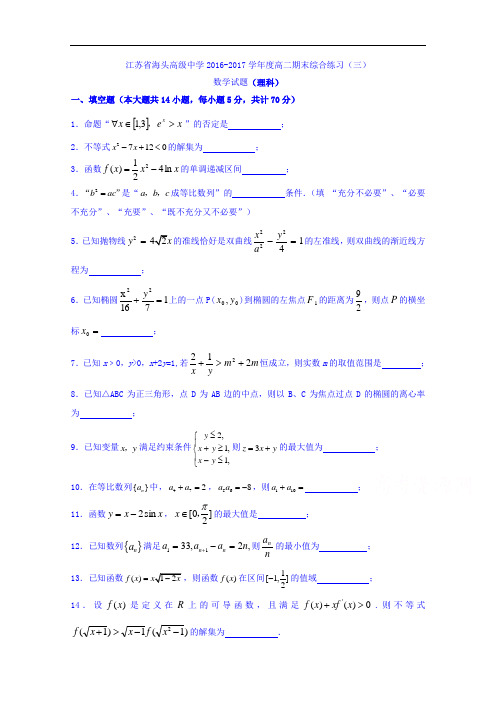 江苏省海头高级中学2016-2017学年度高二期末综合练习（三）
数学试题（理科）
一、填空题（本大题共14小题，每小题5分，共计70分）
1．命题“∀x∈[1,3]，e^x > x”的否定是 ；
2．不等式x²－7x＋12＜0的解集为 ；
3．函数f(x)=1/2 x²－4ln x的单调递减区间 ；
4．“b²=ac”是“a，b，c成等比数列”的 条件．（填 “充分不必要”、“必要
不充分”、“充要”、“既不充分又不必要”）
5．已知抛物线y² = 4√2x的准线恰好是双曲线x²/a² － y²/4 = 1的左准线，则双曲线的渐近线方
程为 ；
6．已知椭圆x²/16 + y²/7 = 1上的一点P(x₀, y₀)到椭圆的左焦点F₁的距离为9/2，则点P的横坐
标x₀= ；
7．已知x﹥0，y﹥0，x+2y=1，若2/x + 1/y > m² + 2m恒成立，则实数m的取值范围是 ；
8．已知△ABC为正三角形，点D为AB边的中点，则以B、C为焦点过点D的椭圆的离心率
为 ；
9．已知变量x，y满足约束条件{y≤2, x+y≥1, x－y≤1, 则z=3x+y的最大值为 ；
10．在等比数列{aₙ}中，a₄+a₇=2，a₅a₆=－8，则a₁+a₁₀= ；
11．函数y=x－2sin x，x∈[0，π/2]的最大值是 ；
12．已知数列{aₙ}满足a₁=33, aₙ₊₁－aₙ=2n, 则aₙ/n的最小值为 ；
13．已知函数f(x)=x√1－2x，则函数f(x)在区间[－1, 1/2]的值域 ；
14．设f(x)是定义在R上的可导函数，且满足f(x)+xf′(x)>0．则不等式
f(√x+1)>√x－1f(√x²－1)的解集为 ．